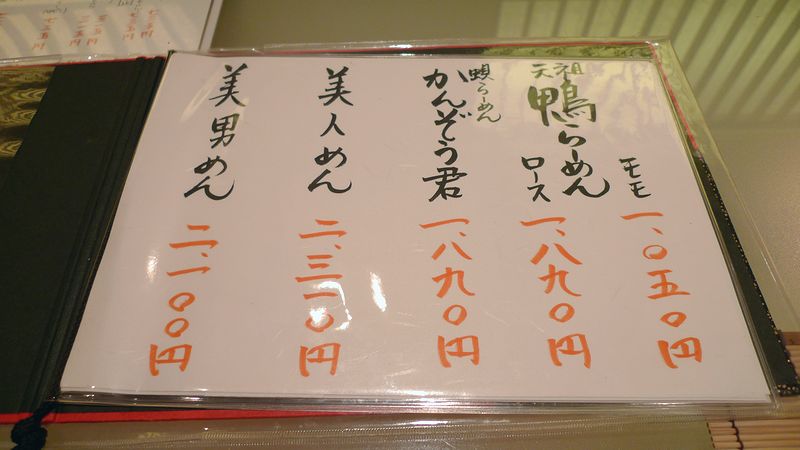 元祖
鴨らーめん
モモ 一、〇五〇円
ロース 一、八九〇円
蜆らーめん
かんぞう君 一、八九〇円
美人めん 二、三一〇円
美男めん 二、一〇〇円